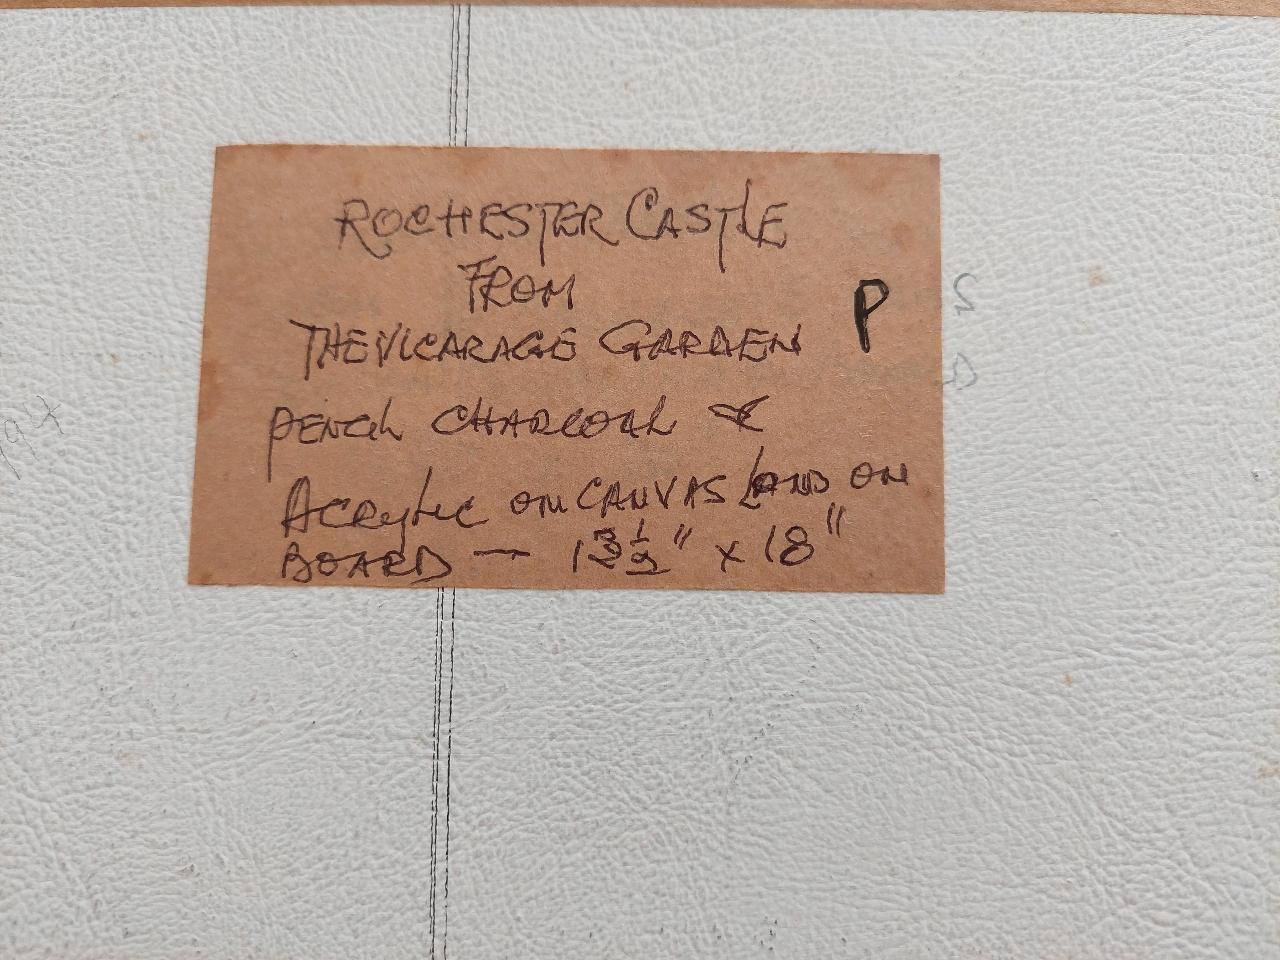 ROCHESTER CASTLE
FROM
THE VICARAGE GARDEN
P
PENCIL CHARCOAL &
ACRYLIC ON CANVAS LAND ON
BOARD — 13 1/2" x 18"